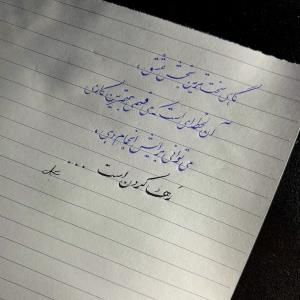 گاهی سخت‌ترین بخش عشق،
آن لحظه‌ای است که می‌فهمی بهترین کاری
می‌توانی برایش انجام دهی،
رها کردن است ...